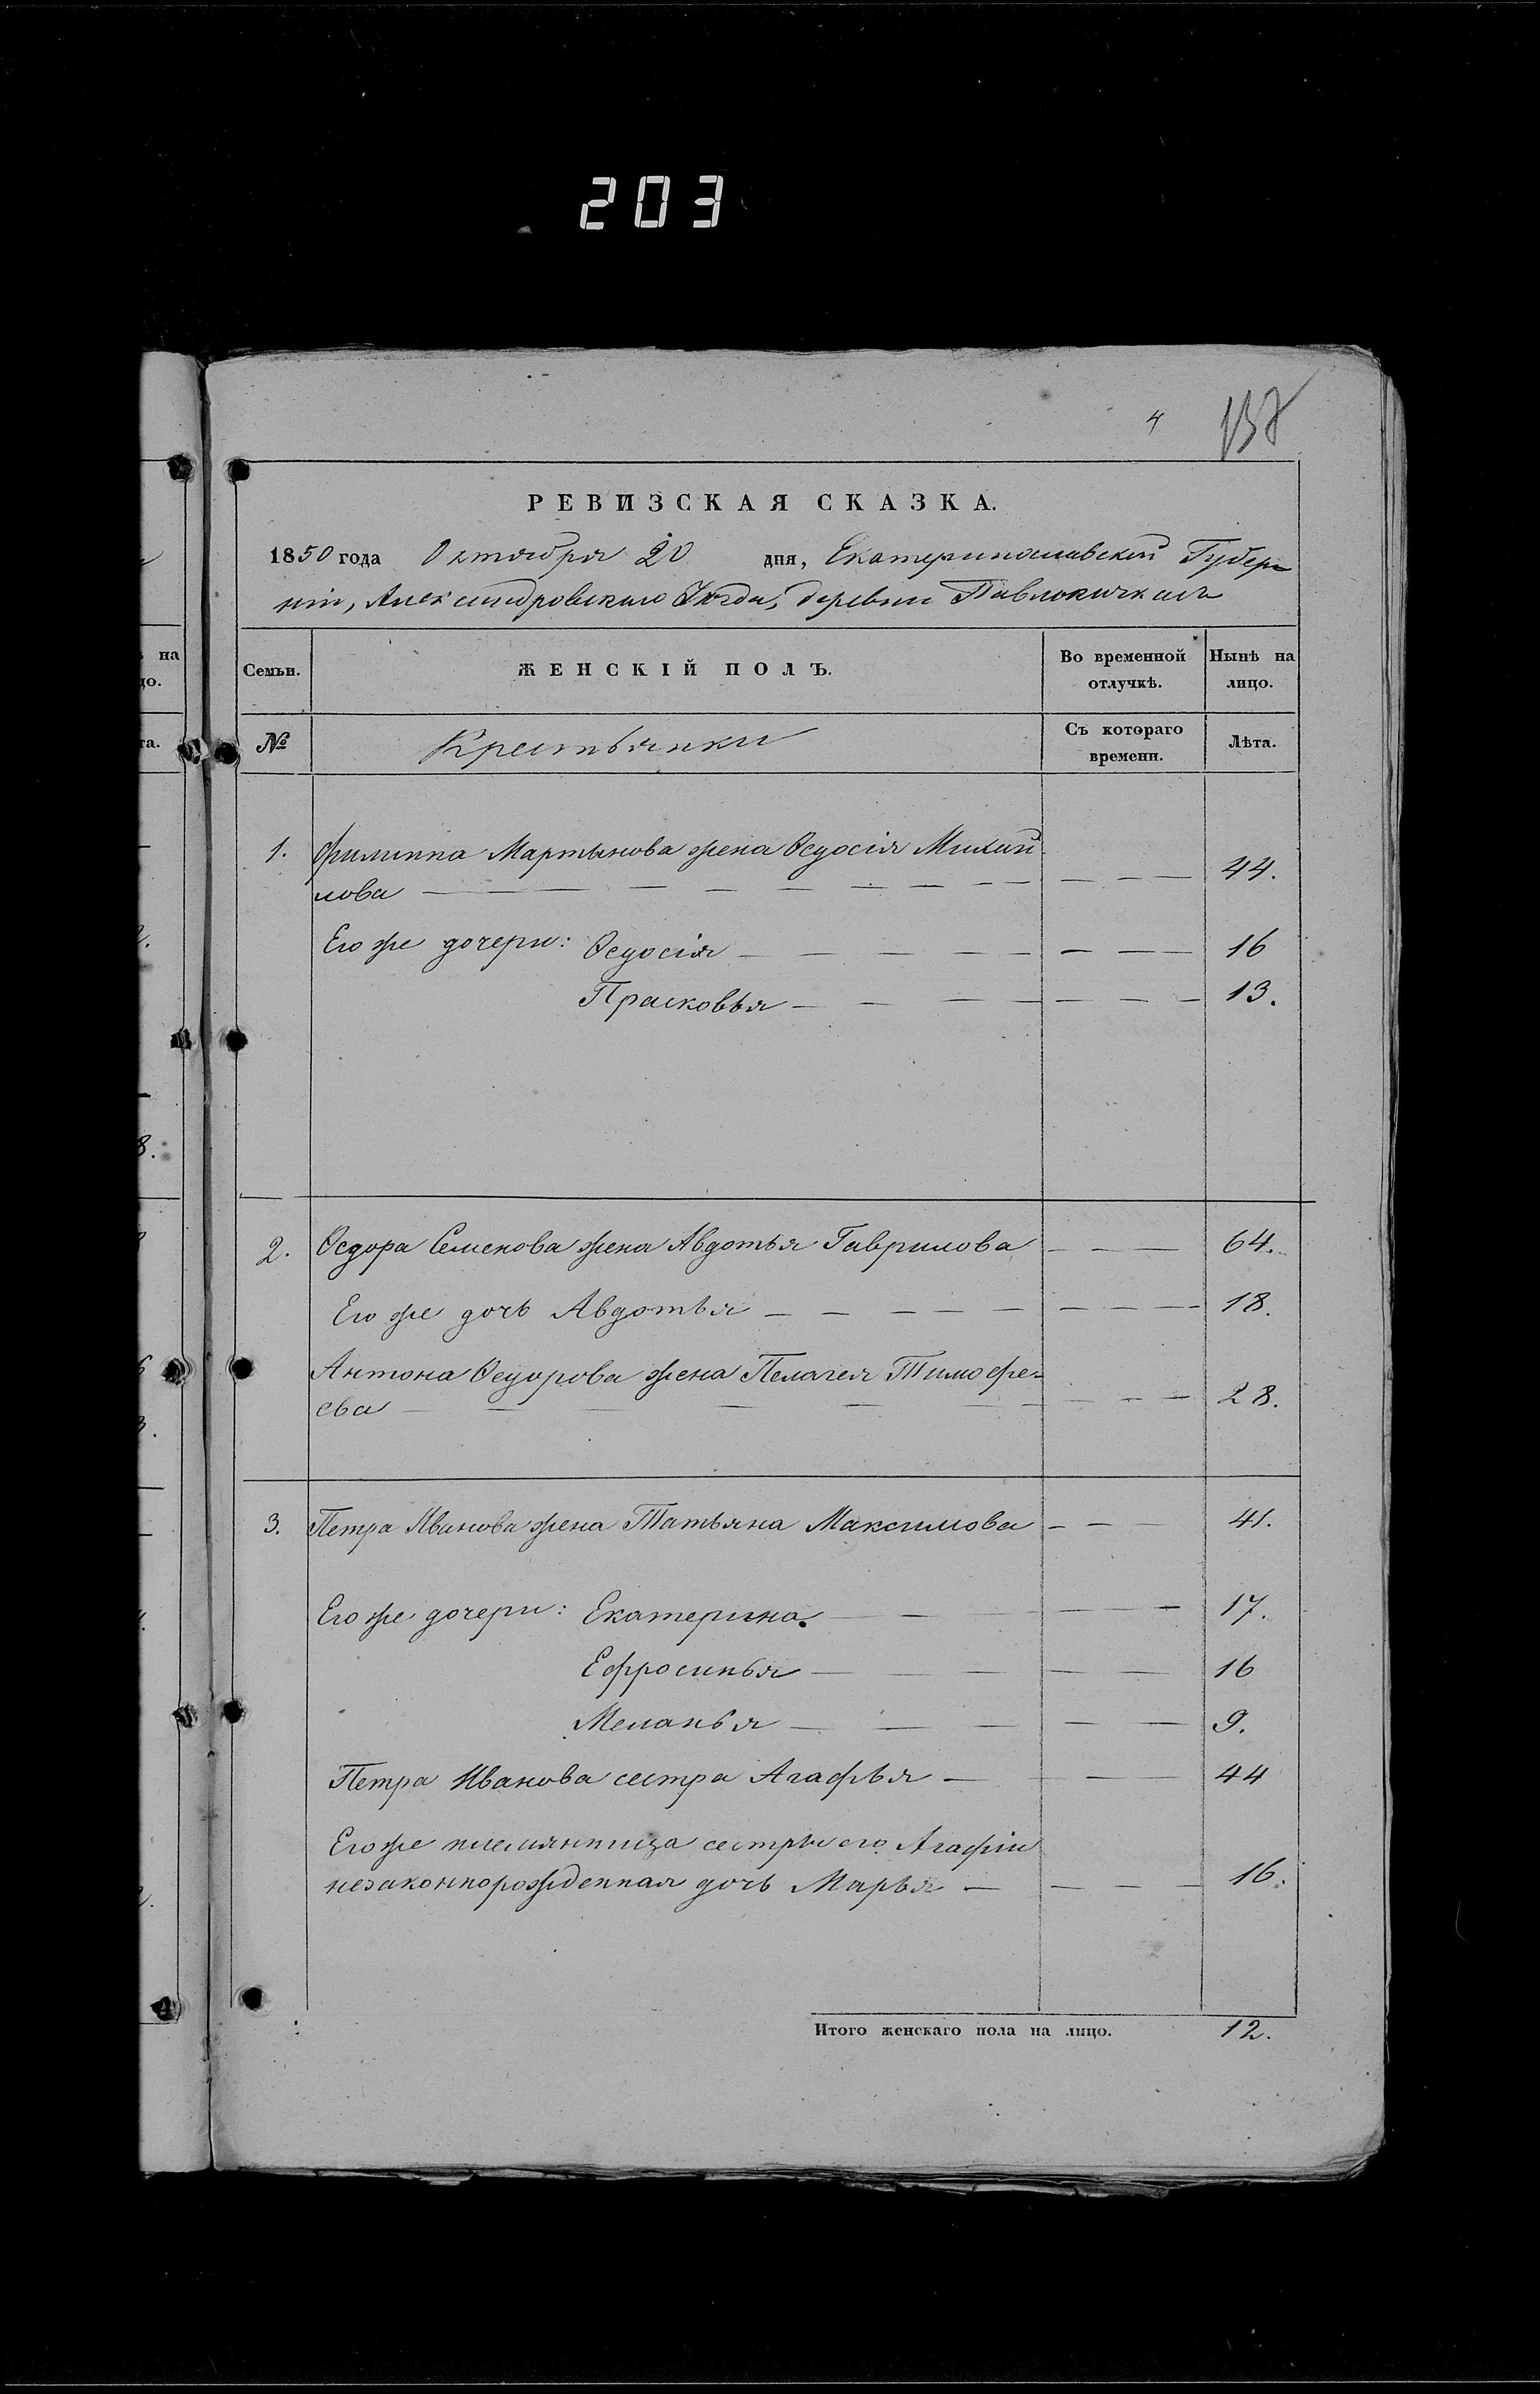 203
4 138
РЕВИЗСКАЯ СКАЗКА.
1850 года Октября 20 дня, Екатеринославской Губер-
ніи, Александровскаго Уѣзда, деревни Павлокичкасъ
на
Семьи. ЖЕНСКІЙ ПОЛЪ. Во временной отлучкѣ. Нынѣ на лицо.
№ Крестьянки Съ котораго времени. Лѣта.
1. Филиппа Мартынова жена Ѳедосія Михай-
лова — — — 44.
Его же дочери: Ѳедосія — — — 16
Прасковья — — — 13.
2. Ѳедора Семенова жена Авдотья Гаврилова — — — 64.
Его же дочь Авдотья — — — 18.
Антона Ѳедорова жена Пелагея Тимофе-
ева — — — 28.
3. Петра Иванова жена Татьяна Максимова — — 41.
Его же дочери: Екатерина — — — 17.
Ефросинья — — — 16
Меланья — — — 9.
Петра Иванова сестра Агафья — — 44
Его же племянница сестры его Агафіи
незаконнорожденная дочь Марья — — — 16.
Итого женскаго пола на лицо. 12.